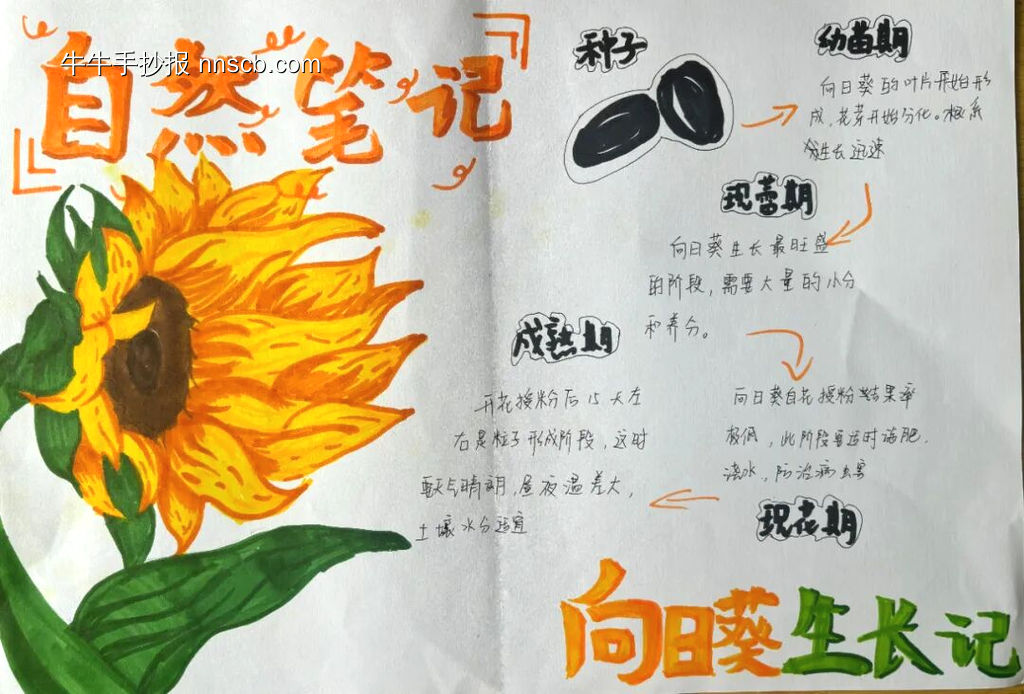 自然笔记
牛牛手抄报 nnscb.com
种子
幼苗期
向日葵的叶片开始形
成,花芽开始分化。根系
生长迅速
现蕾期
向日葵生长最旺盛
的阶段,需要大量的水分
和养分。
向日葵自花授粉结果率
极低,此阶段要适时施肥.
浇水,防治病虫害
现花期
成熟期
开花授粉后15天左
右是籽子形成阶段,这时
天气晴朗,昼夜温差大,
土壤水分适宜
向日葵生长记